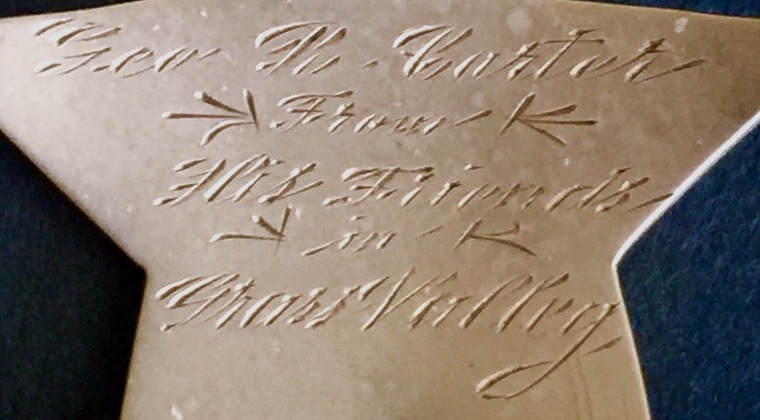 Geo Th. Carter
From
His Friends
in
Grass Valley